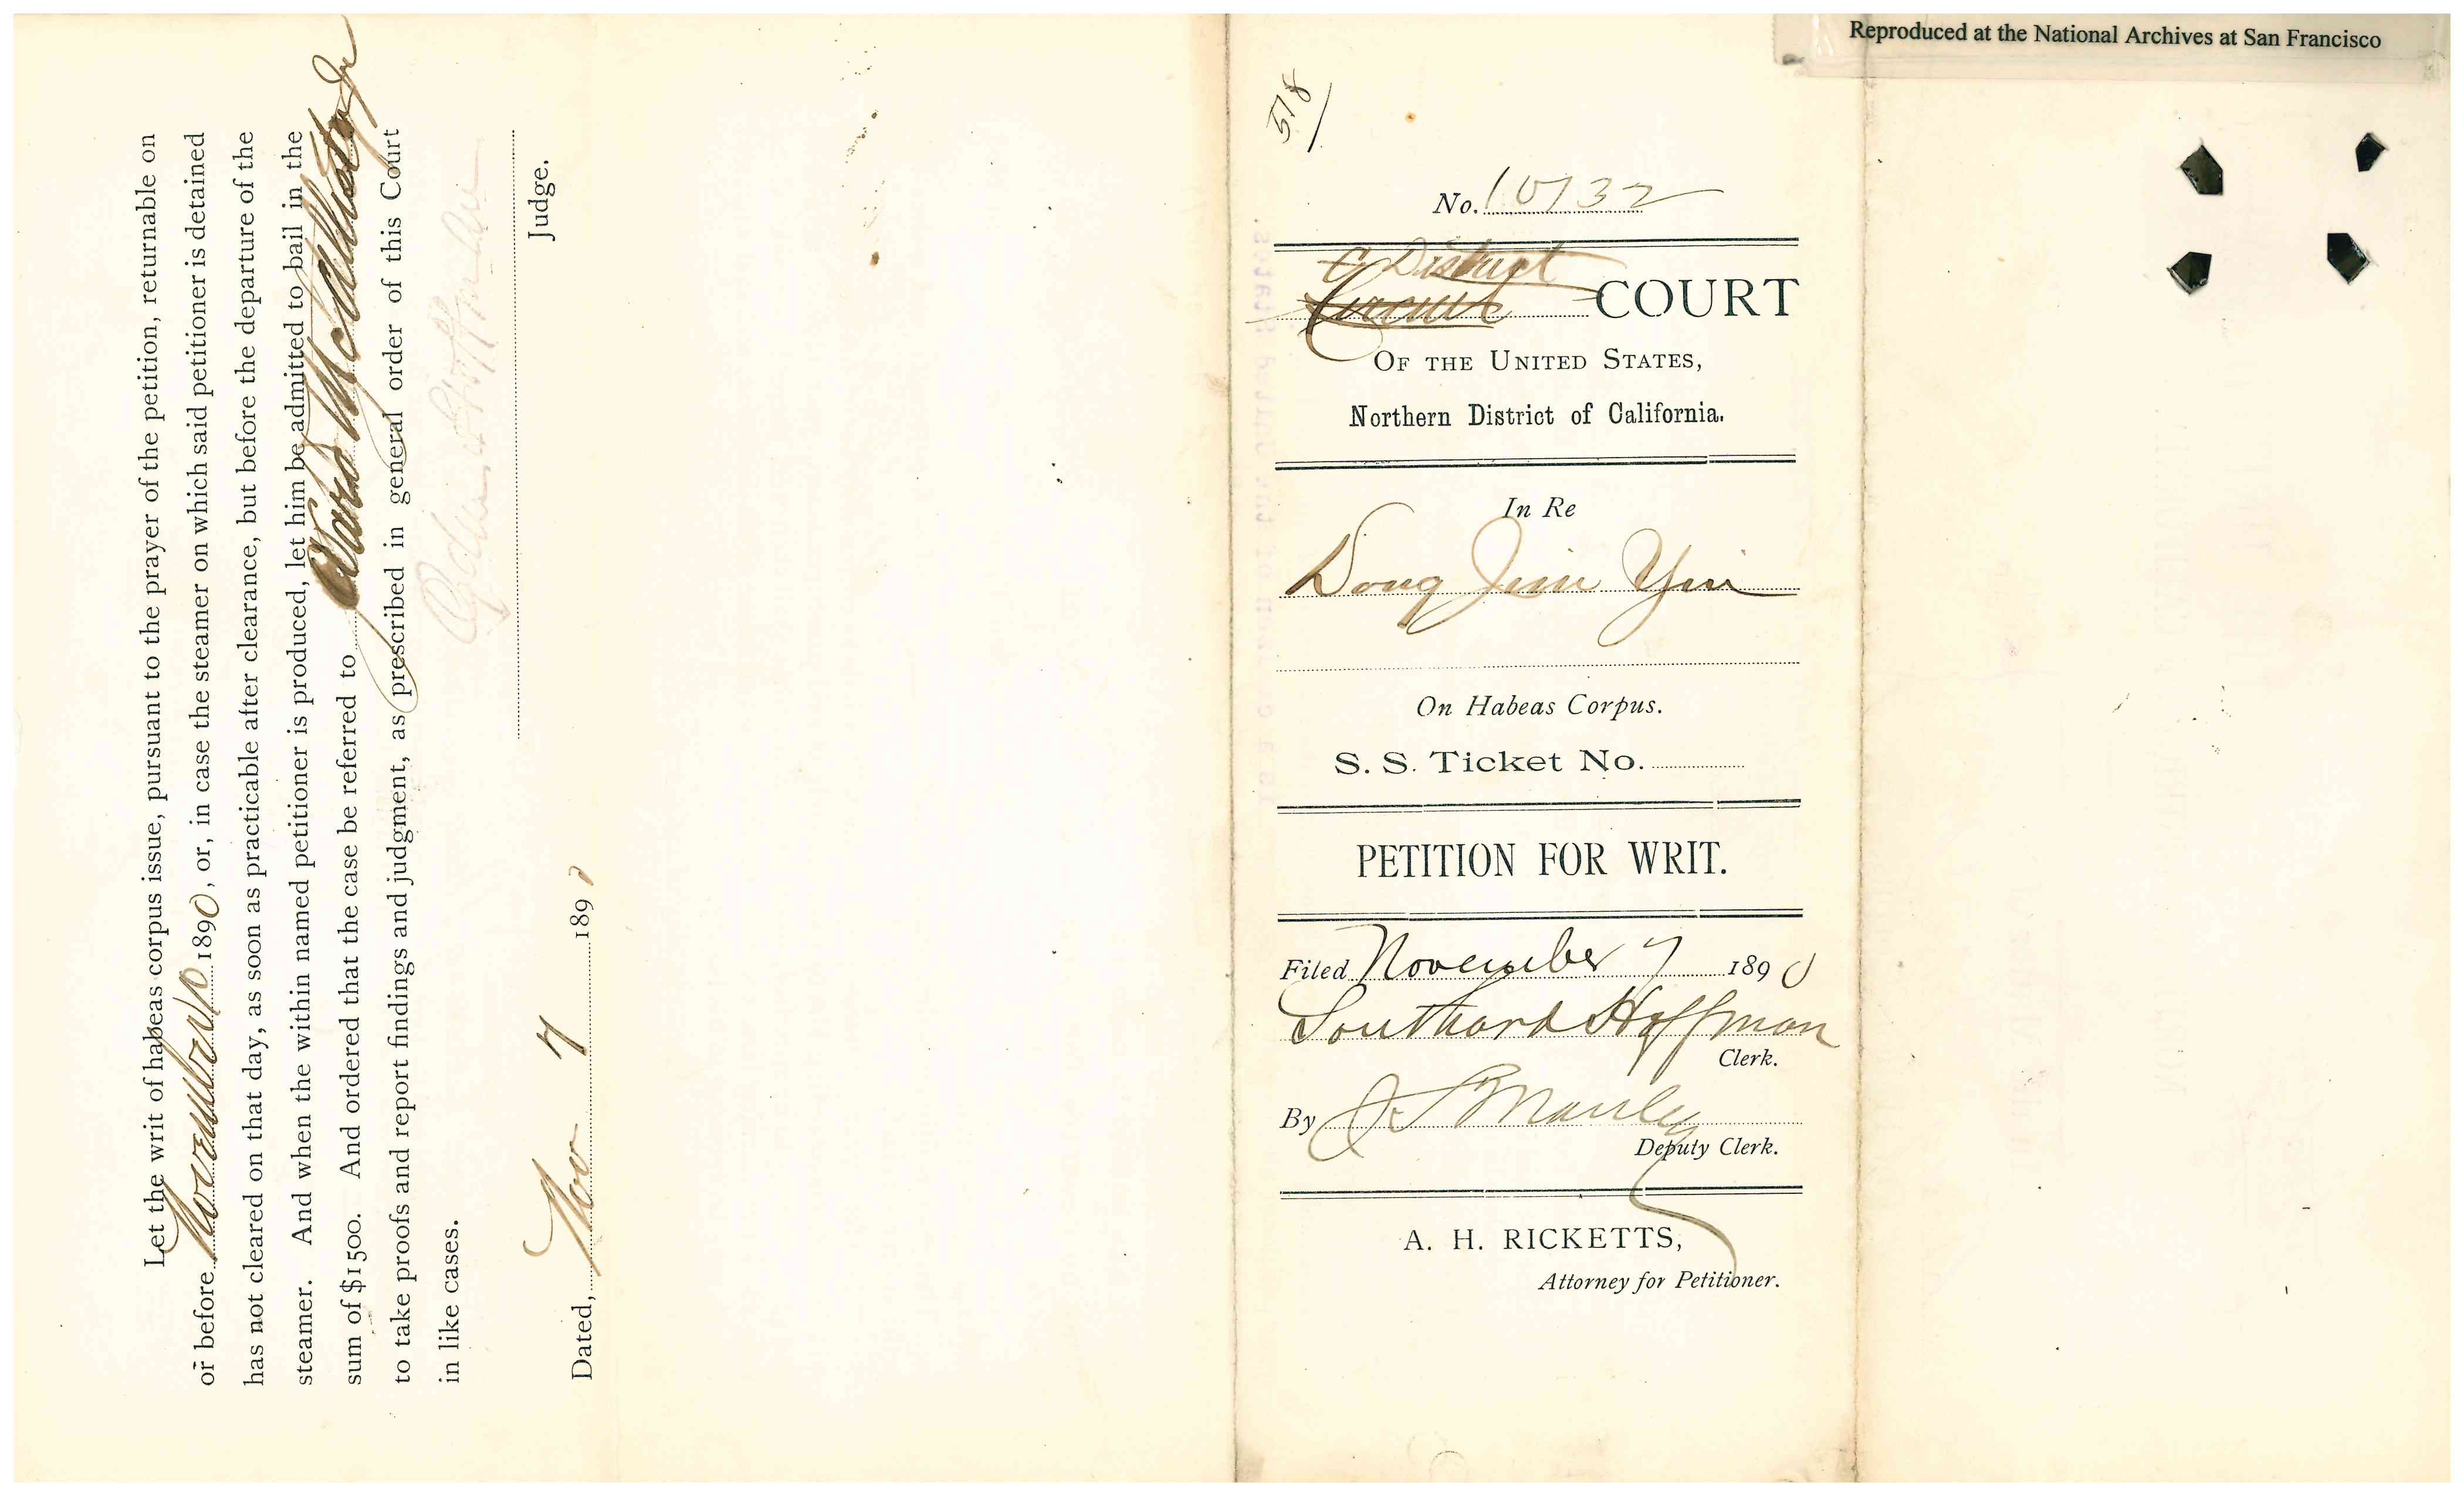 Let the writ of habeas corpus issue, pursuant to the prayer of the petition, returnable on
or before November 10 1890, or, in case the steamer on which said petitioner is detained
has not cleared on that day, as soon as practicable after clearance, but before the departure of the
steamer. And when the within named petitioner is produced, let him be admitted to bail in the
sum of $1500. And ordered that the case be referred to Ward McAllister Jr
to take proofs and report findings and judgment, as prescribed in general order of this Court
in like cases.
Ogden Hoffman
Judge.
Dated, Nov 7 189
Reproduced at the National Archives at San Francisco
518
No. 10132
District
Circuit COURT
OF THE UNITED STATES,
Northern District of California.
In Re
Dong Jim Yin
On Habeas Corpus.
S. S. Ticket No.
PETITION FOR WRIT.
Filed November 7 1890
Southard Hoffman
Clerk.
By Manley
Deputy Clerk.
A. H. RICKETTS,
Attorney for Petitioner.